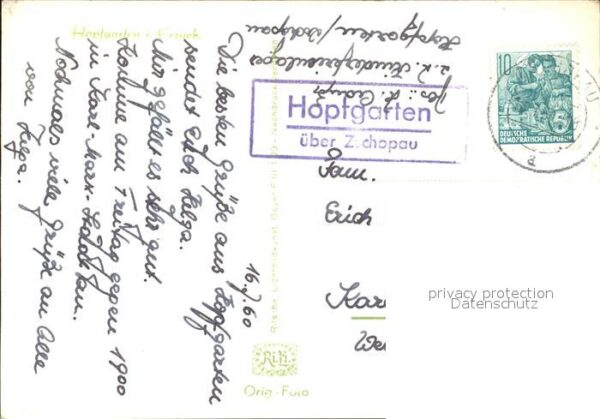 Hopfgarten i. Erzgeb.
16.7.60
Die besten Grüße aus Hopfgarten
sendet Euch Helga.
Mir gefällt es sehr gut.
Komme am Freitag gegen 1900
in Karl-Marx-Stadt an.
Nochmals viele Grüße an Alle
von Helga.
z.Z. Kinderferienlager
Hopfgarten/Zschopau
Hopfgarten
über Zschopau
10
DEUTSCHE
DEMOKRATISCHE REPUBLIK
Fam.
Erich
Kar
We
privacy protection
Datenschutz
Orig.-Foto